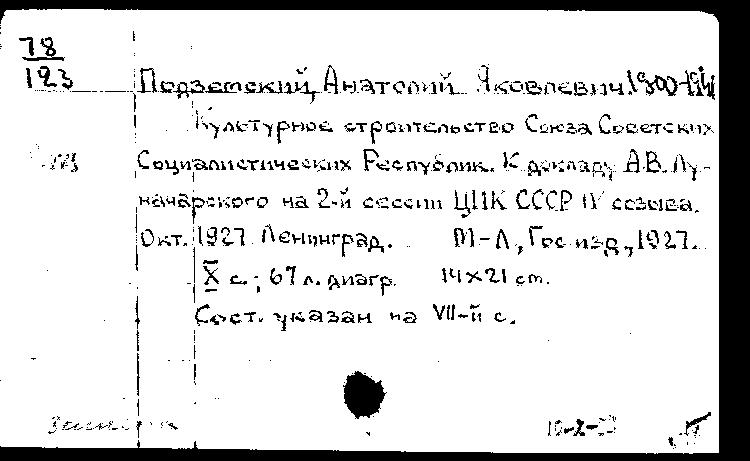 78
123
Подземский, Анатолий Яковлевич. 1900-
Культурное строительство Союза Советских
Социалистических Республик. К докладу А.В. Лу-
начарского на 2-й сессии ЦИК СССР IV созыва.
Окт. 1927 Ленинград. М-Л, Гос изд, 1927.
X с.; 67 л. диагр. 14×21 cm.
Сост. указан на VII-й с.